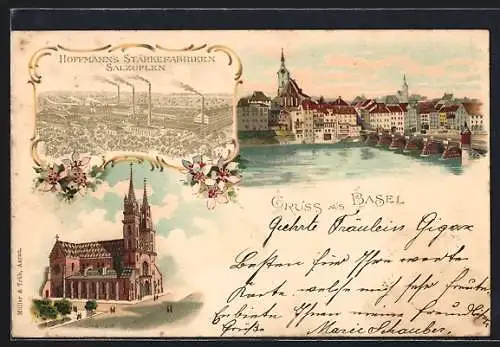 HOFFMANN'S STÄRKEFABRIKEN
SALZUFLEN
GRUSS aus BASEL
Geehrte Fräulein Gigax
Besten für Ihre werte
Karte welche mich sehr freute
Erbiete Ihnen meine freundl.
Grüße Marie Schauber
Müller & Trüb, Aarau.